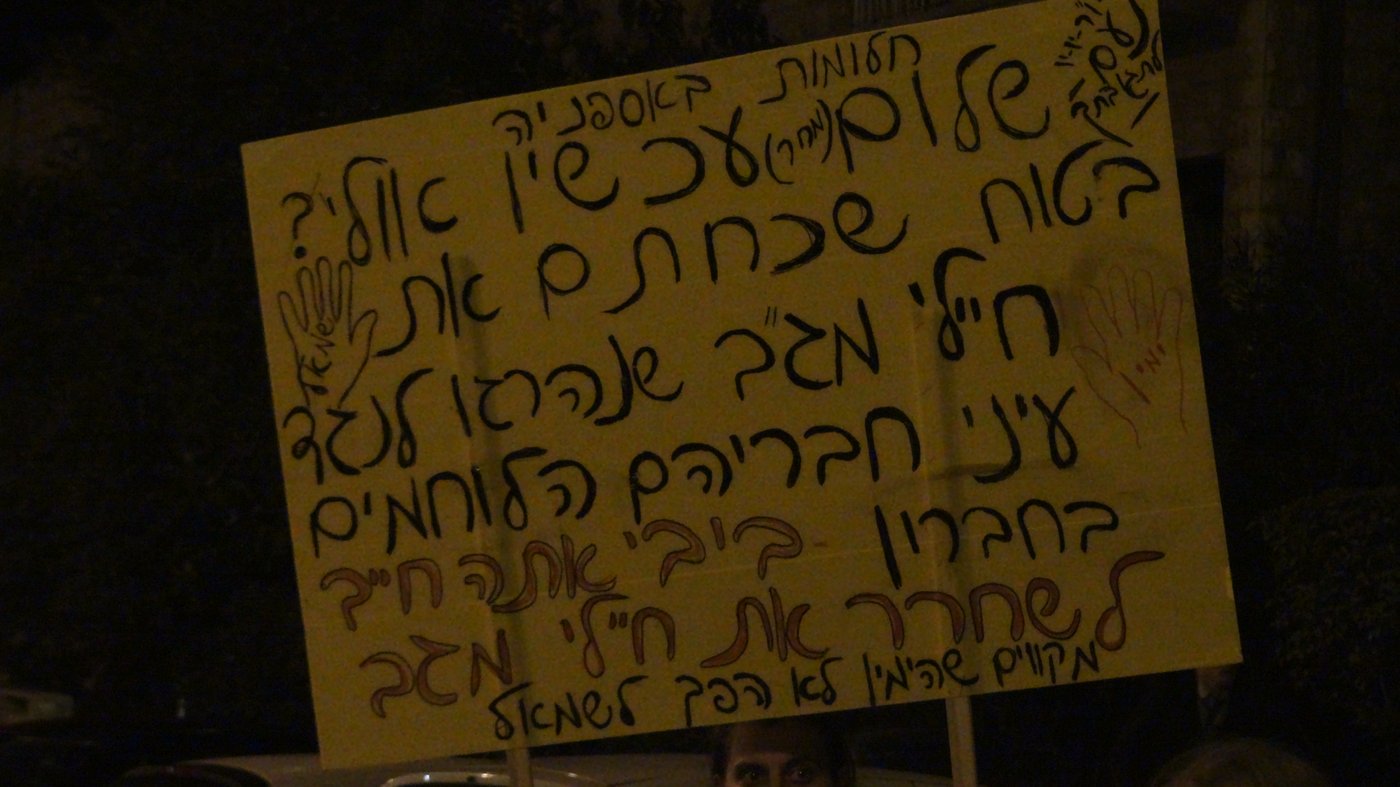 חלומות באספניה
שלום (מחר) עכשיו אולי?
בטוח שכחתם את
שמאל
חיילי מג"ב שנהרגו לנגד
ימין
עיני חבריהם הלוחמים
בחברון ביבי אתה חייב
לשחרר את חיילי מגב
מקווים שהימין לא הפך לשמאל